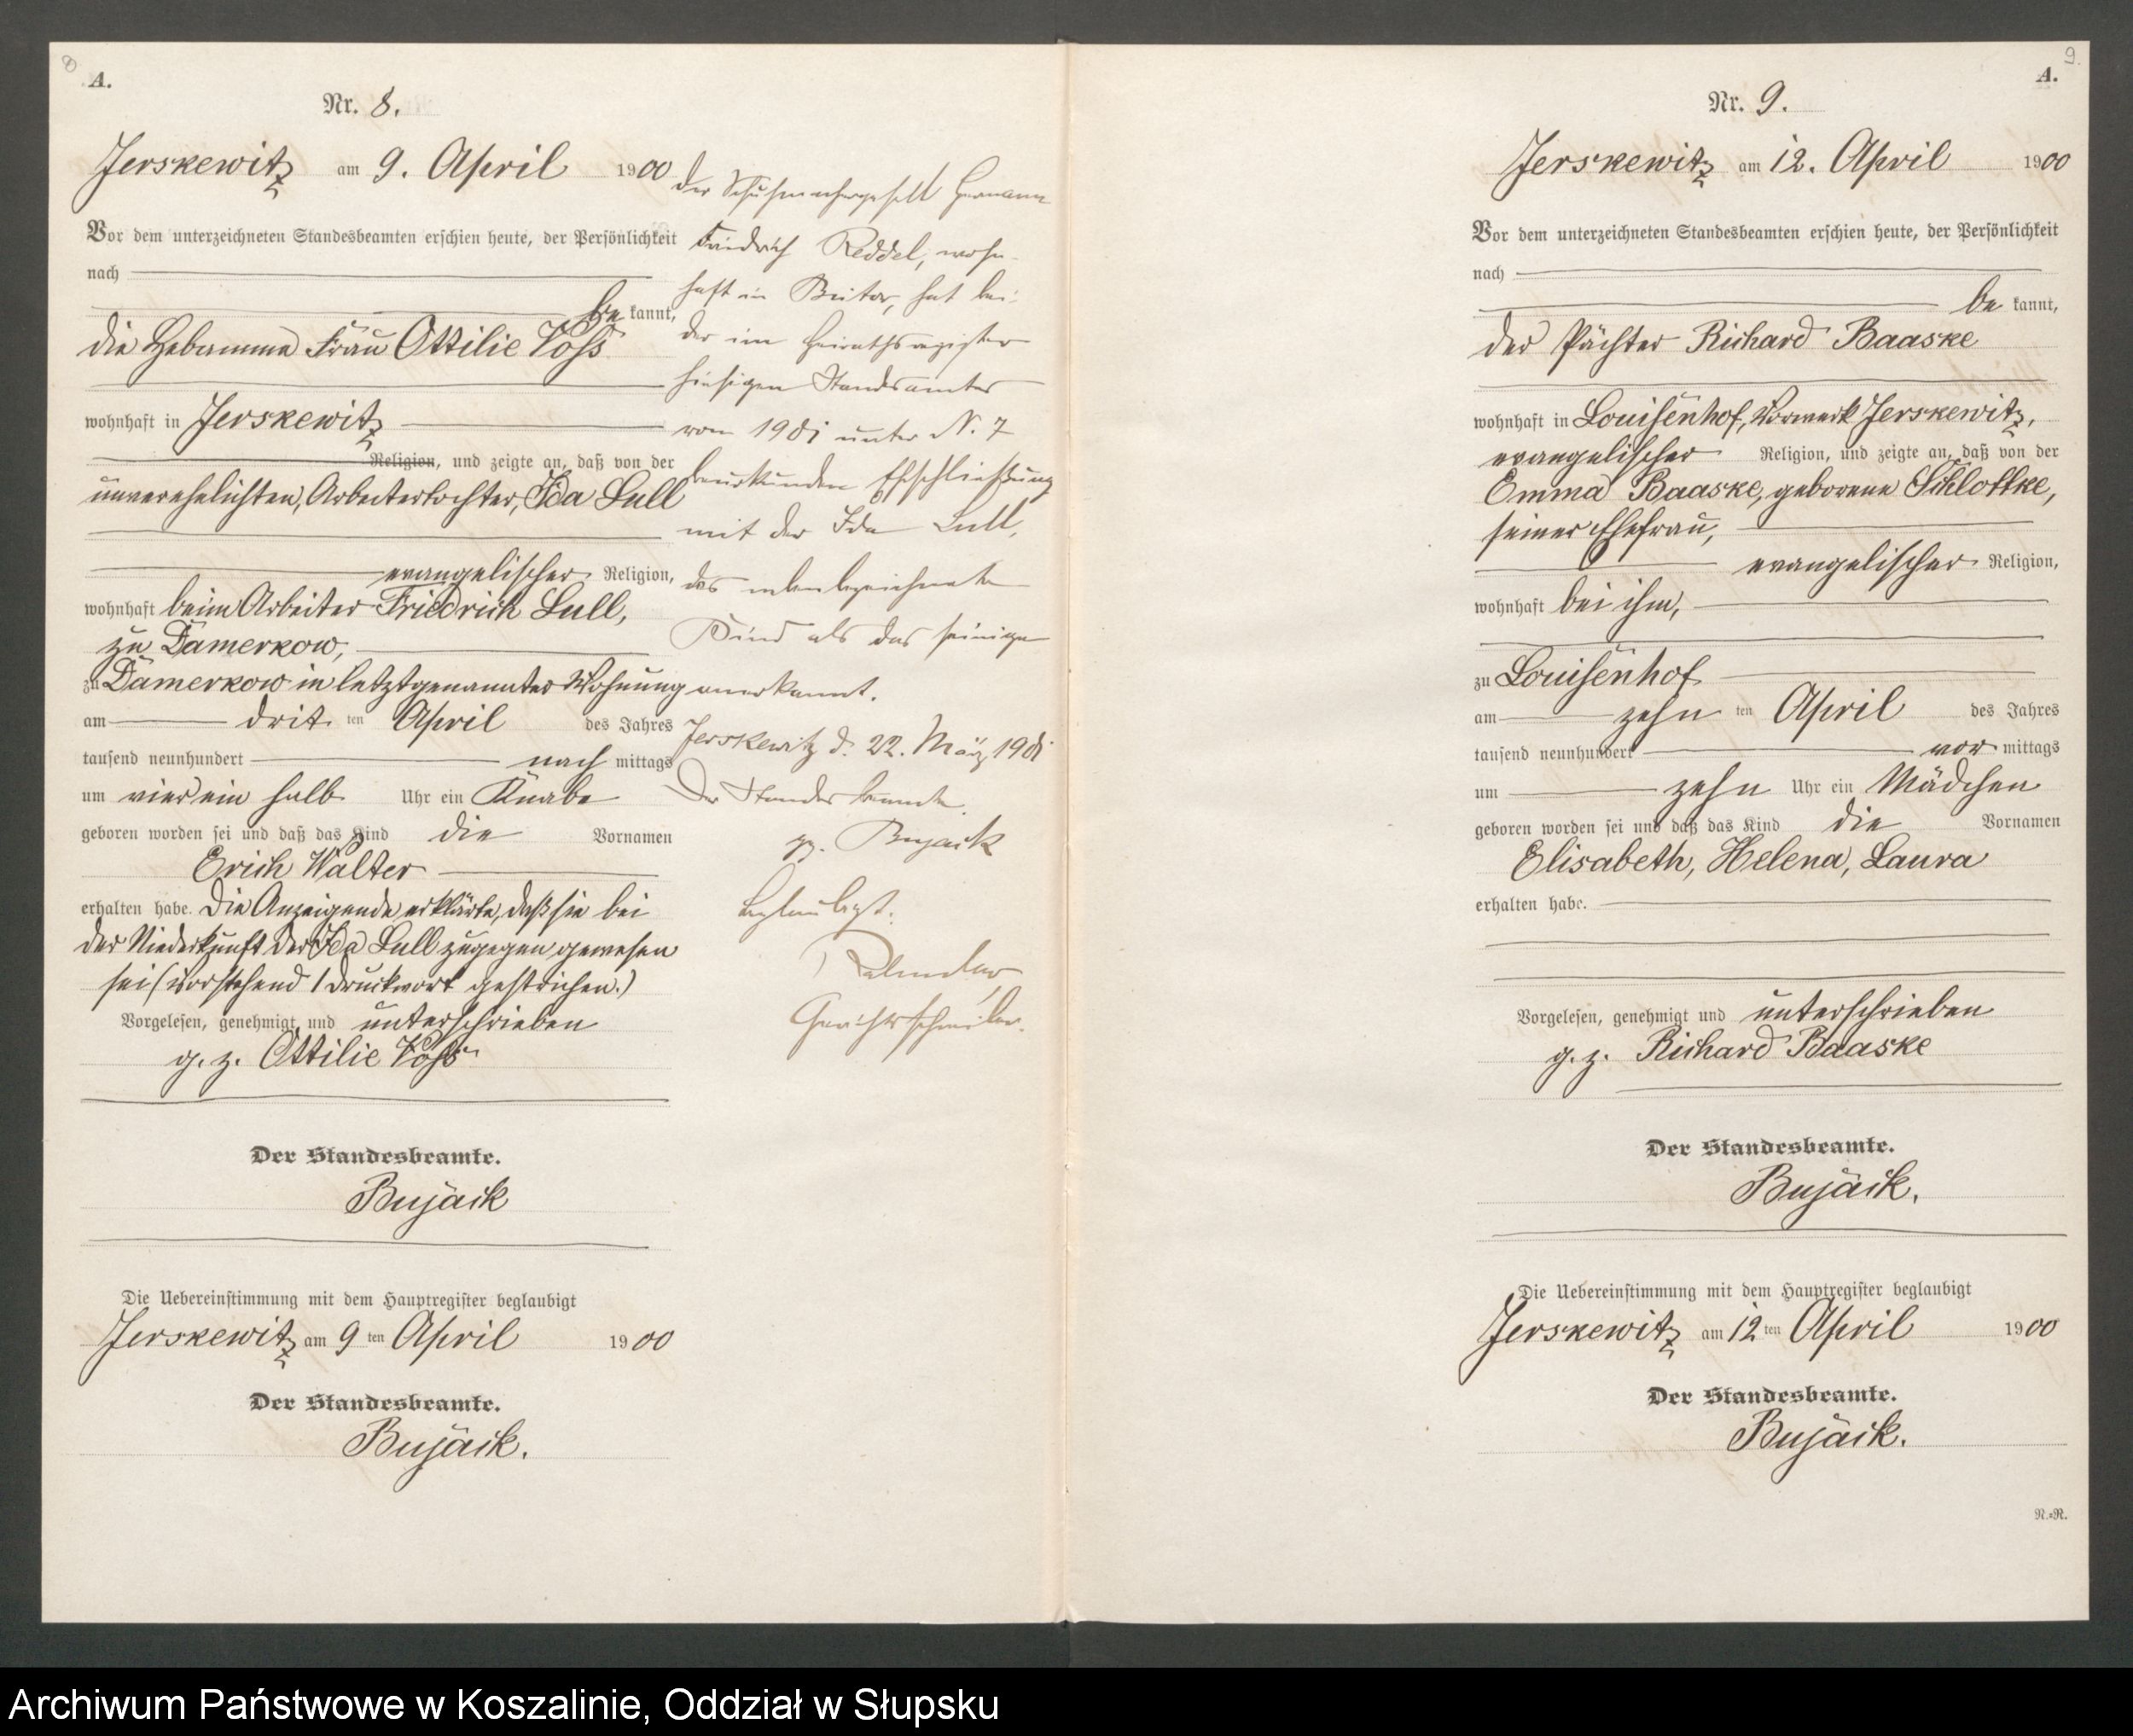 8
A.
Nr. 8.
Jerskewitz am 9. April 1900
Vor dem unterzeichneten Standesbeamten erschien heute, der Persönlichkeit
nach
be kannt,
die Hebamme Frau Ottilie Voß
wohnhaft in Jerskewitz
Religion, und zeigte an, daß von der
unverehelichten, Arbeitertochter, Ida Lull
evangelischer Religion,
wohnhaft beim Arbeiter Friedrich Lull,
zu Damerkow,
zu Damerkow in letztgenannter Wohnung
am drit ten April des Jahres
tausend neunhundert nach mittags
um vier ein halb Uhr ein Knabe
geboren worden sei und daß das Kind die Vornamen
Erich Walter
erhalten habe. Die Anzeigende erklärte, daß sie bei
der Niederkunft der Ida Lull zugegen gewesen
sei (Vorstehend 1 Druckwort gestrichen.)
Vorgelesen, genehmigt und unterschrieben
g. z. Ottilie Voß
Der Standesbeamte.
Bujack
Die Uebereinstimmung mit dem Hauptregister beglaubigt
Jerskewitz am 9 ten April 1900
Der Standesbeamte.
Bujack.
Der Schuhmachergesell Hermann
Friedrich Reddel, wohn-
haft in Bütow, hat bei
der im Heirathsregister
hiesigen Standesamtes
vom 1901 unter N. 7
beurkunden Eheschließung
mit der Ida Lull,
das nebenbezeichnete
Kind als das seinige
anerkannt.
Jerskewitz d. 22. März 1901
Der Standesbeamte.
gz. Bujack
Beglaubigt.
Gerichtsschreiber.
9.
A.
Nr. 9.
Jerskewitz am 12. April 1900
Vor dem unterzeichneten Standesbeamten erschien heute, der Persönlichkeit
nach
be kannt,
der Pächter Richard Baaske
wohnhaft in Louisenhof, Vorwerk Jerskewitz,
evangelischer Religion, und zeigte an, daß von der
Emma Baaske, geborene Schlottke,
seiner Ehefrau,
evangelischer Religion,
wohnhaft bei ihm,
zu Louisenhof
am zehn ten April des Jahres
tausend neunhundert vor mittags
um zehn Uhr ein Mädchen
geboren worden sei und daß das Kind die Vornamen
Elisabeth, Helena, Laura
erhalten habe.
Vorgelesen, genehmigt und unterschrieben
g. z. Richard Baaske
Der Standesbeamte.
Bujack.
Die Uebereinstimmung mit dem Hauptregister beglaubigt
Jerskewitz am 12 ten April 1900
Der Standesbeamte.
Bujack.
N.=R.
Archiwum Państwowe w Koszalinie, Oddział w Słupsku